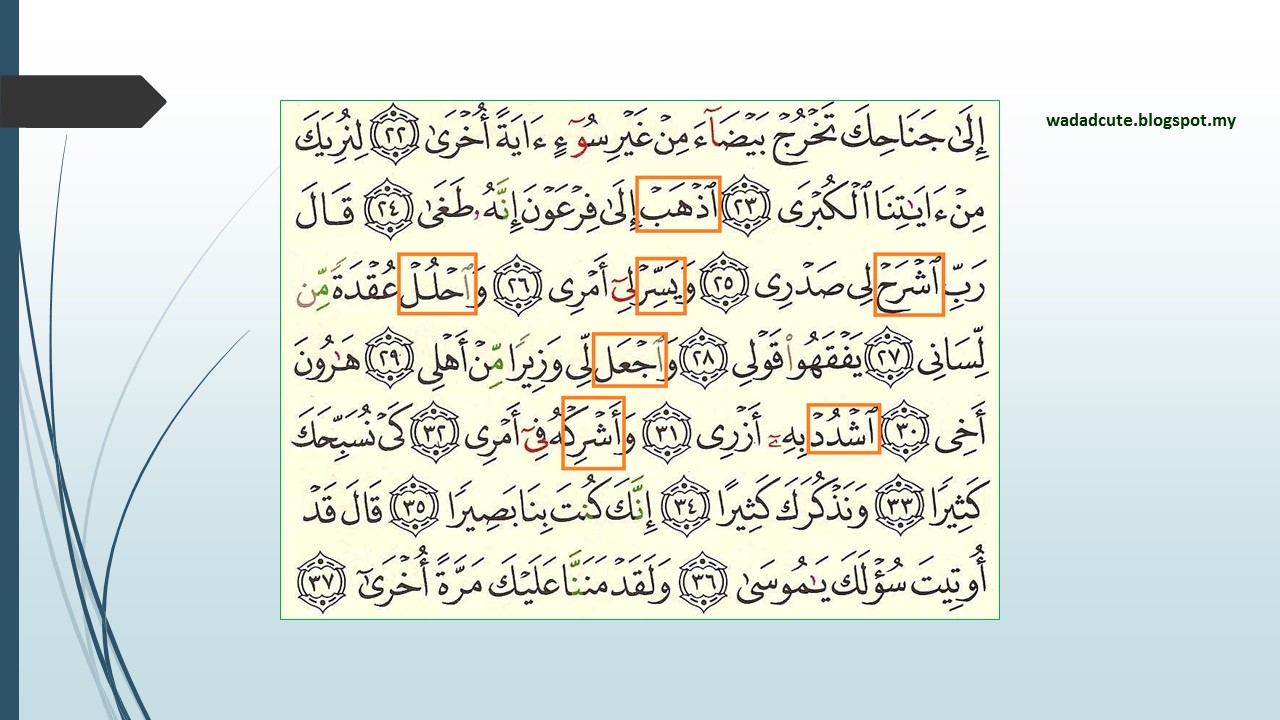 wadadcute.blogspot.my
إِلَىٰ جَنَاحِكَ تَخْرُجْ بَيْضَآءَ مِنْ غَيْرِ سُوٓءٍ ءَايَةً أُخْرَىٰ ﴿٢٢﴾ لِنُرِيَكَ
مِنْ ءَايَـٰتِنَا ٱلْكُبْرَى ﴿٢٣﴾ ٱذْهَبْ إِلَىٰ فِرْعَوْنَ إِنَّهُۥ طَغَىٰ ﴿٢٤﴾ قَالَ
رَبِّ ٱشْرَحْ لِى صَدْرِى ﴿٢٥﴾ وَيَسِّرْ لِىٓ أَمْرِى ﴿٢٦﴾ وَٱحْلُلْ عُقْدَةً مِّن
لِّسَانِى ﴿٢٧﴾ يَفْقَهُوا۟ قَوْلِى ﴿٢٨﴾ وَٱجْعَل لِّى وَزِيرًا مِّنْ أَهْلِى ﴿٢٩﴾ هَـٰرُونَ
أَخِى ﴿٣٠﴾ ٱشْدُدْ بِهِۦٓ أَزْرِى ﴿٣١﴾ وَأَشْرِكْهُ فِىٓ أَمْرِى ﴿٣٢﴾ كَىْ نُسَبِّحَكَ
كَثِيرًا ﴿٣٣﴾ وَنَذْكُرَكَ كَثِيرًا ﴿٣٤﴾ إِنَّكَ كُنتَ بِنَا بَصِيرًا ﴿٣٥﴾ قَالَ قَدْ
أُوتِيتَ سُؤْلَكَ يَـٰمُوسَىٰ ﴿٣٦﴾ وَلَقَدْ مَنَنَّا عَلَيْكَ مَرَّةً أُخْرَىٰٓ ﴿٣٧﴾